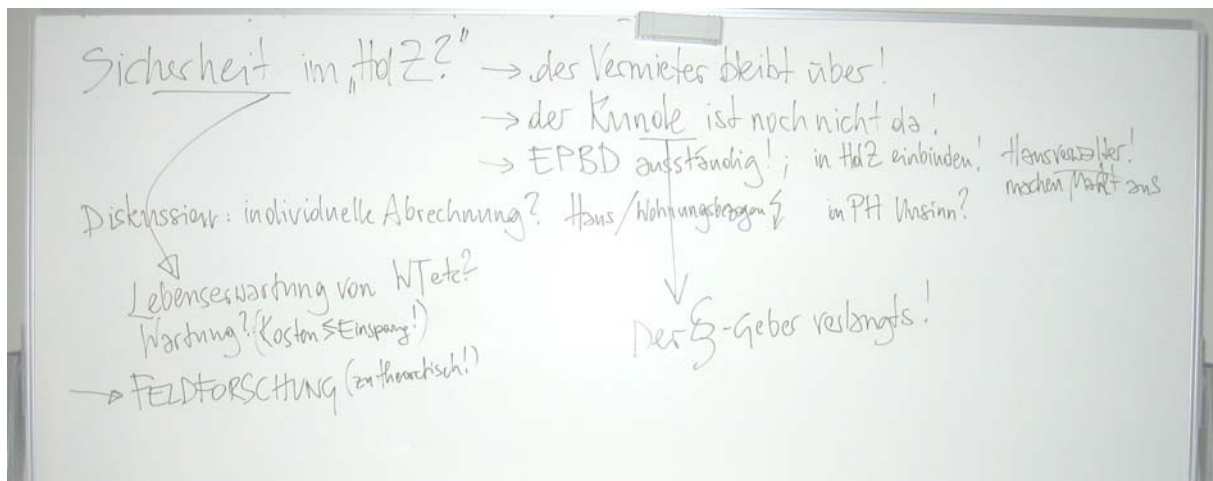 Sicherheit im „HdZ?“ → der Vermieter bleibt über!
→ der Kunde ist noch nicht da!
→ EPBD ausständig!; in HdZ einbinden! Hausverwalter!
machen Markt aus
Diskussion: individuelle Abrechnung? Haus/Wohnungsbezogen in PH Unsinn?
Lebenserwartung von WTetc?
Wartung? (Kosten ≤ Einsparg!)
Der §-Geber verlangts!
→ FELDFORSCHUNG (zu theoretisch!)